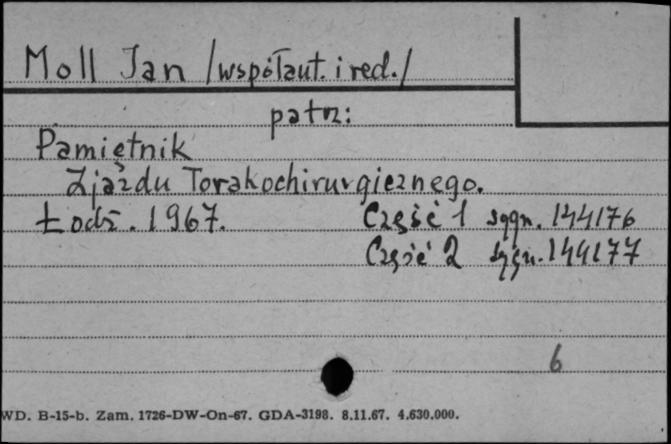 Moll Jan /współaut. i red./
patrz:
Pamiętnik
Zjazdu Torakochirurgicznego.
Łódź. 1967. Część 1 sygn. 144176
Część 2 sygn. 144177
6
WD. B-15-b. Zam. 1726-DW-On-67. GDA-3198. 8.11.67. 4.630.000.